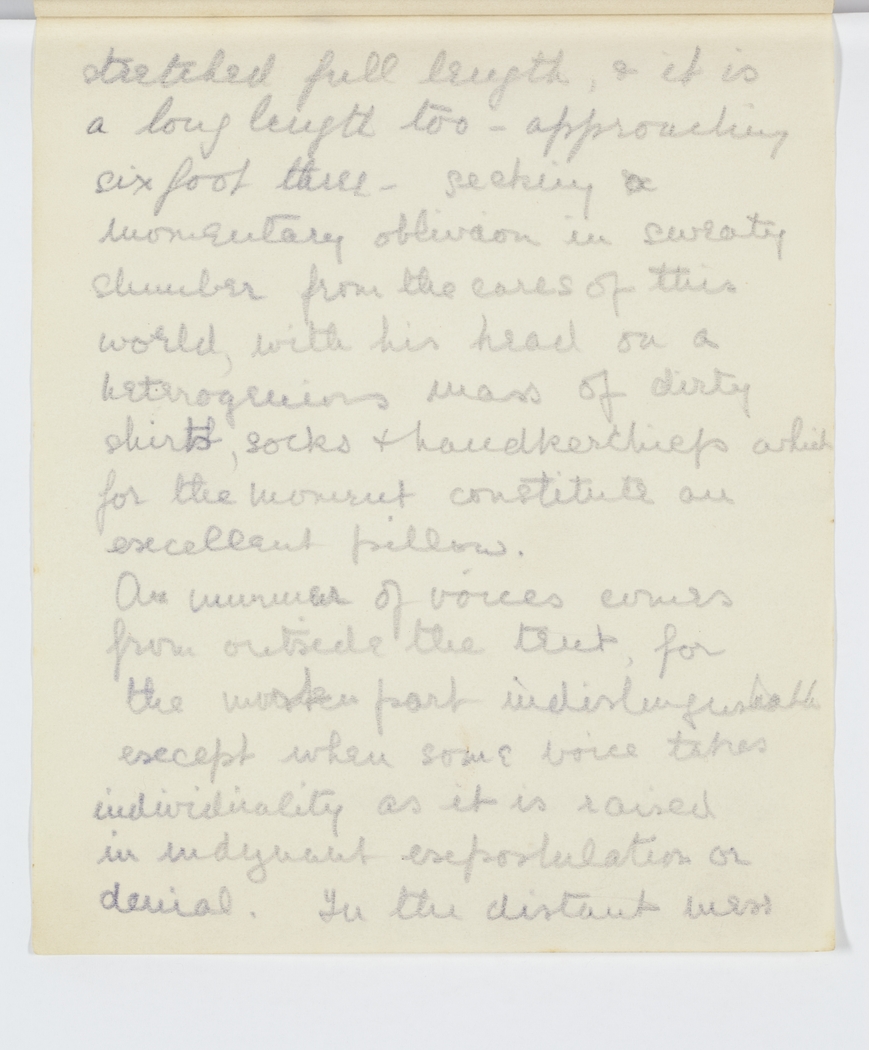 stretched full length, & it is
a long length too - approaching
six foot three - seeking a
momentary oblivion in sweaty
slumber from the cares of this
world, with his head on a
heterogenious mass of dirty
shirts, socks & handkerchiefs which
for the moment constitute an
excellent pillow.
A murmur of voices comes
from outside the tent, for
the most part indistinguishable
except when some voice takes
individuality as it is raised
in indignant expostulation or
denial. In the distant mess